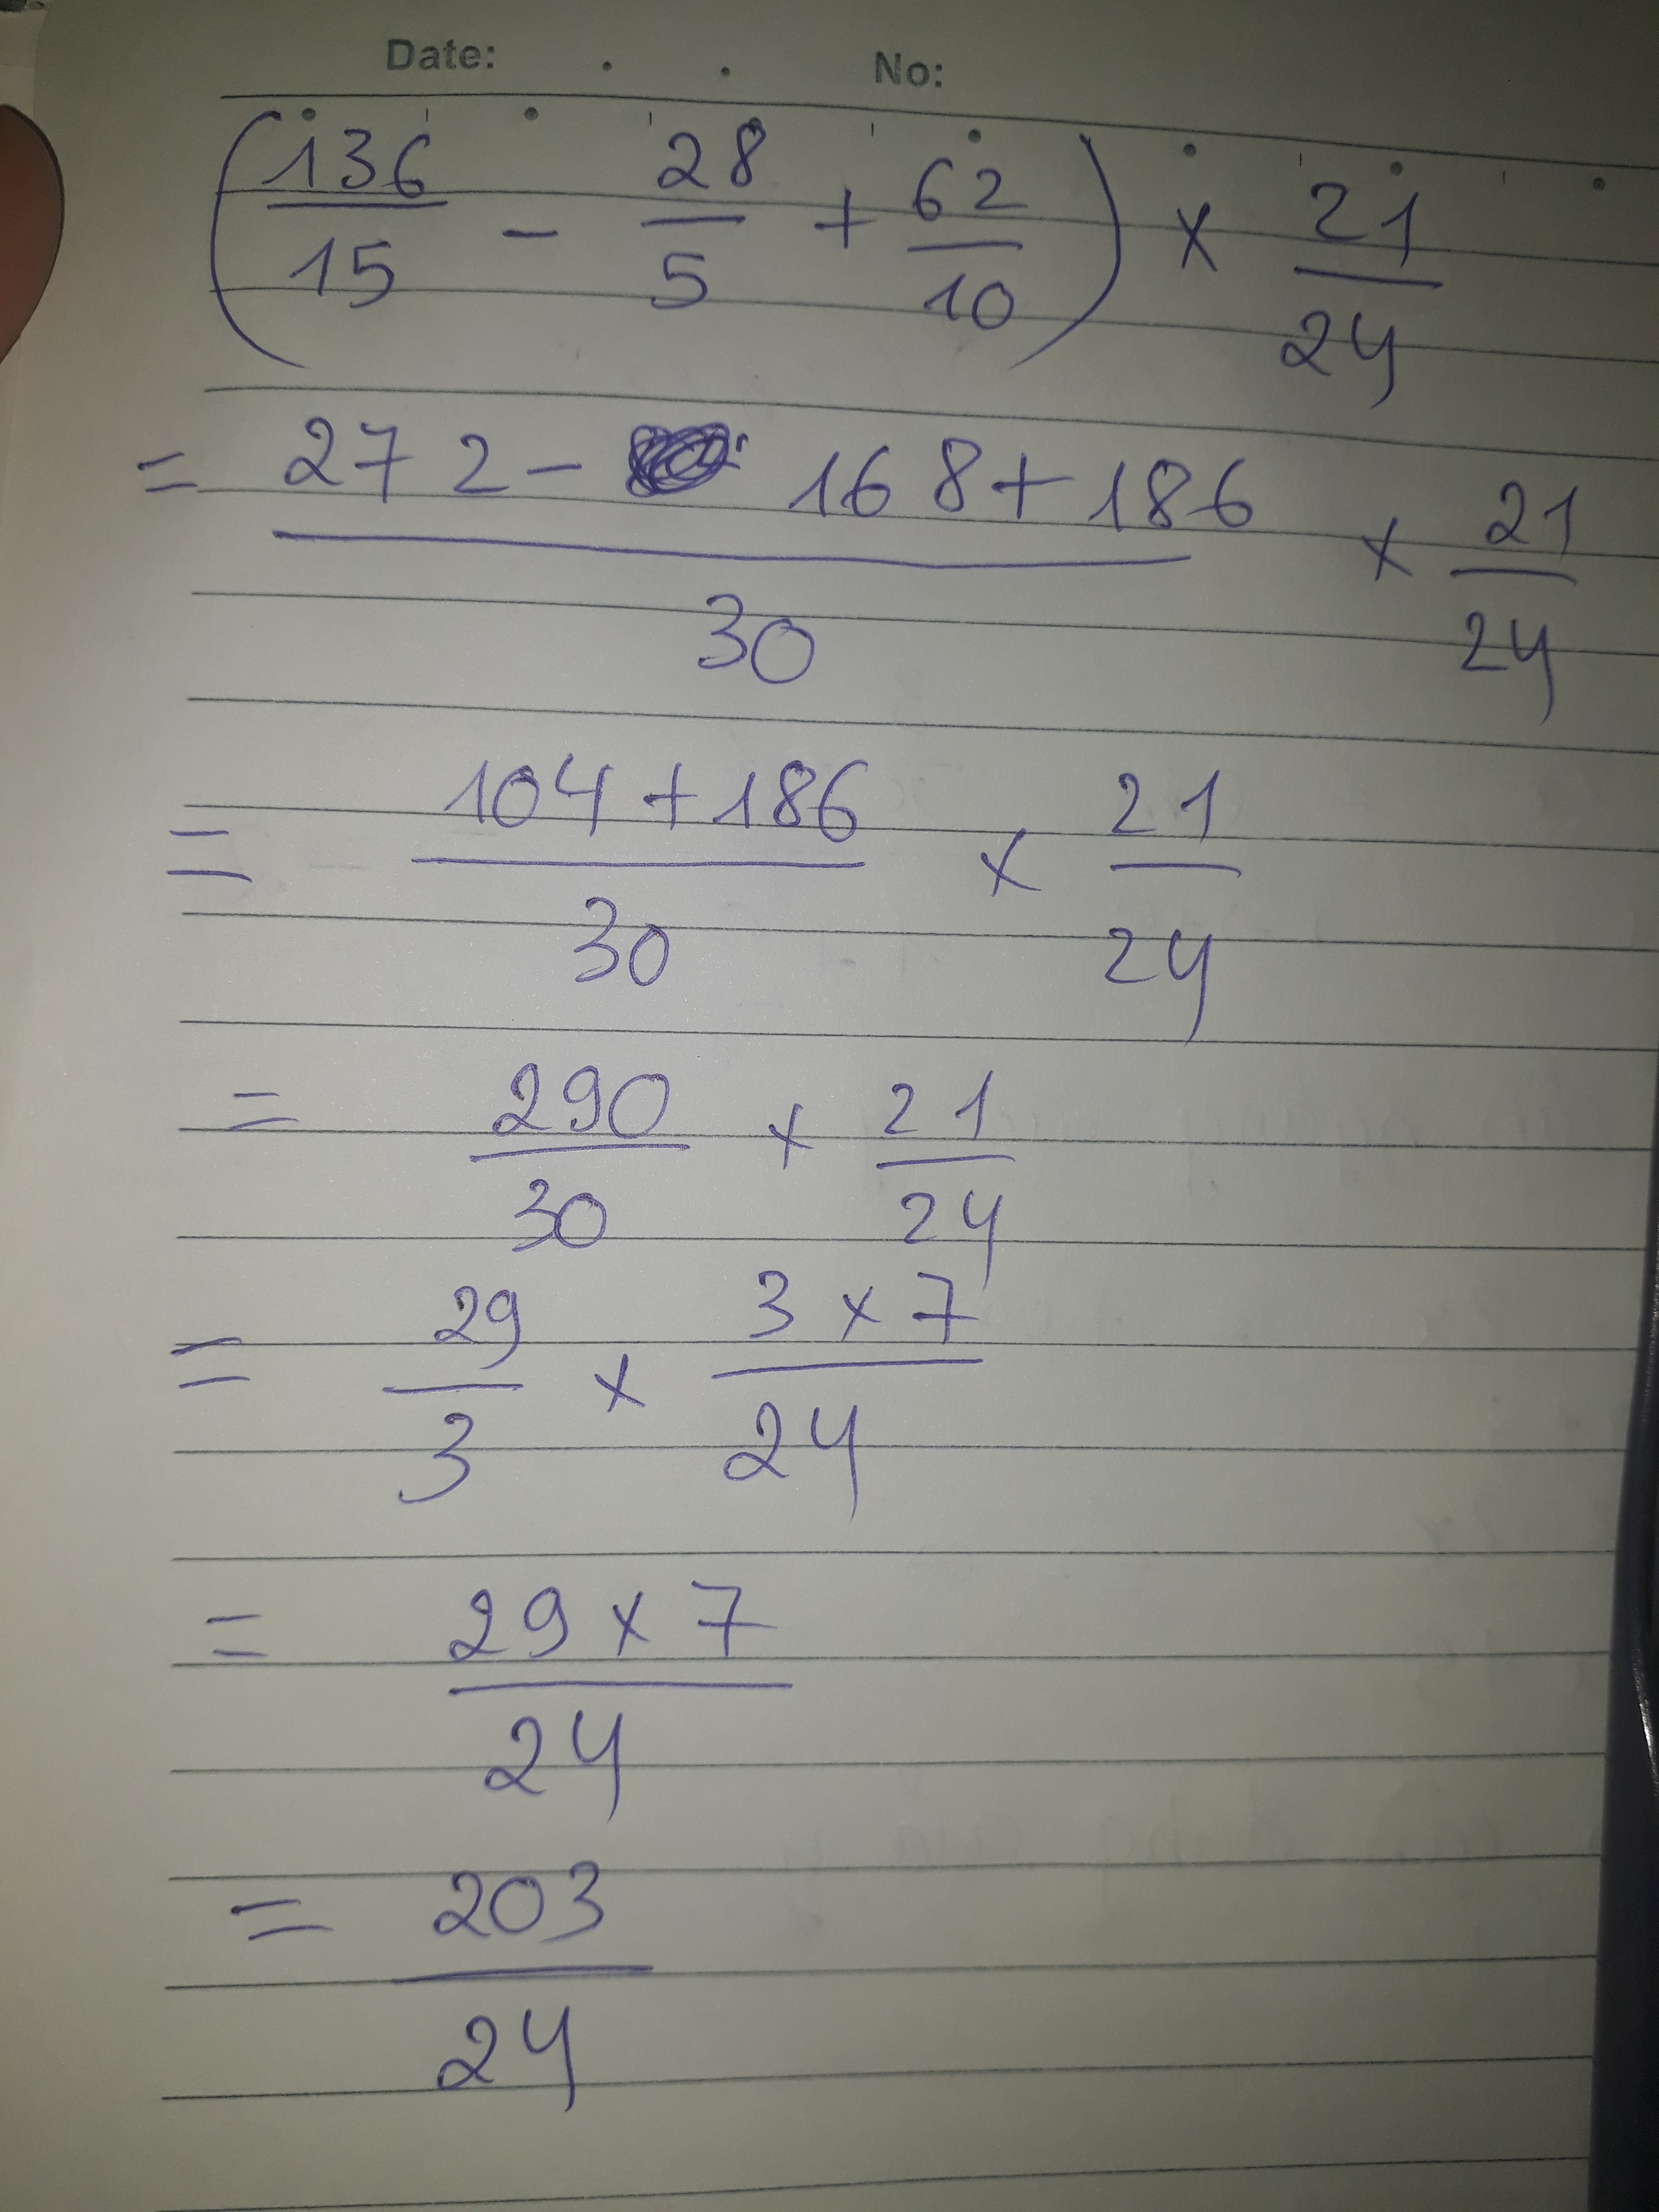 Date: . . No:
(136/15 - 28/5 + 62/10) x 21/24
= (272 - 168 + 186)/30 x 21/24
= (104 + 186)/30 x 21/24
= 290/30 x 21/24
= 29/3 x (3 x 7)/24
= (29 x 7)/24
= 203/24